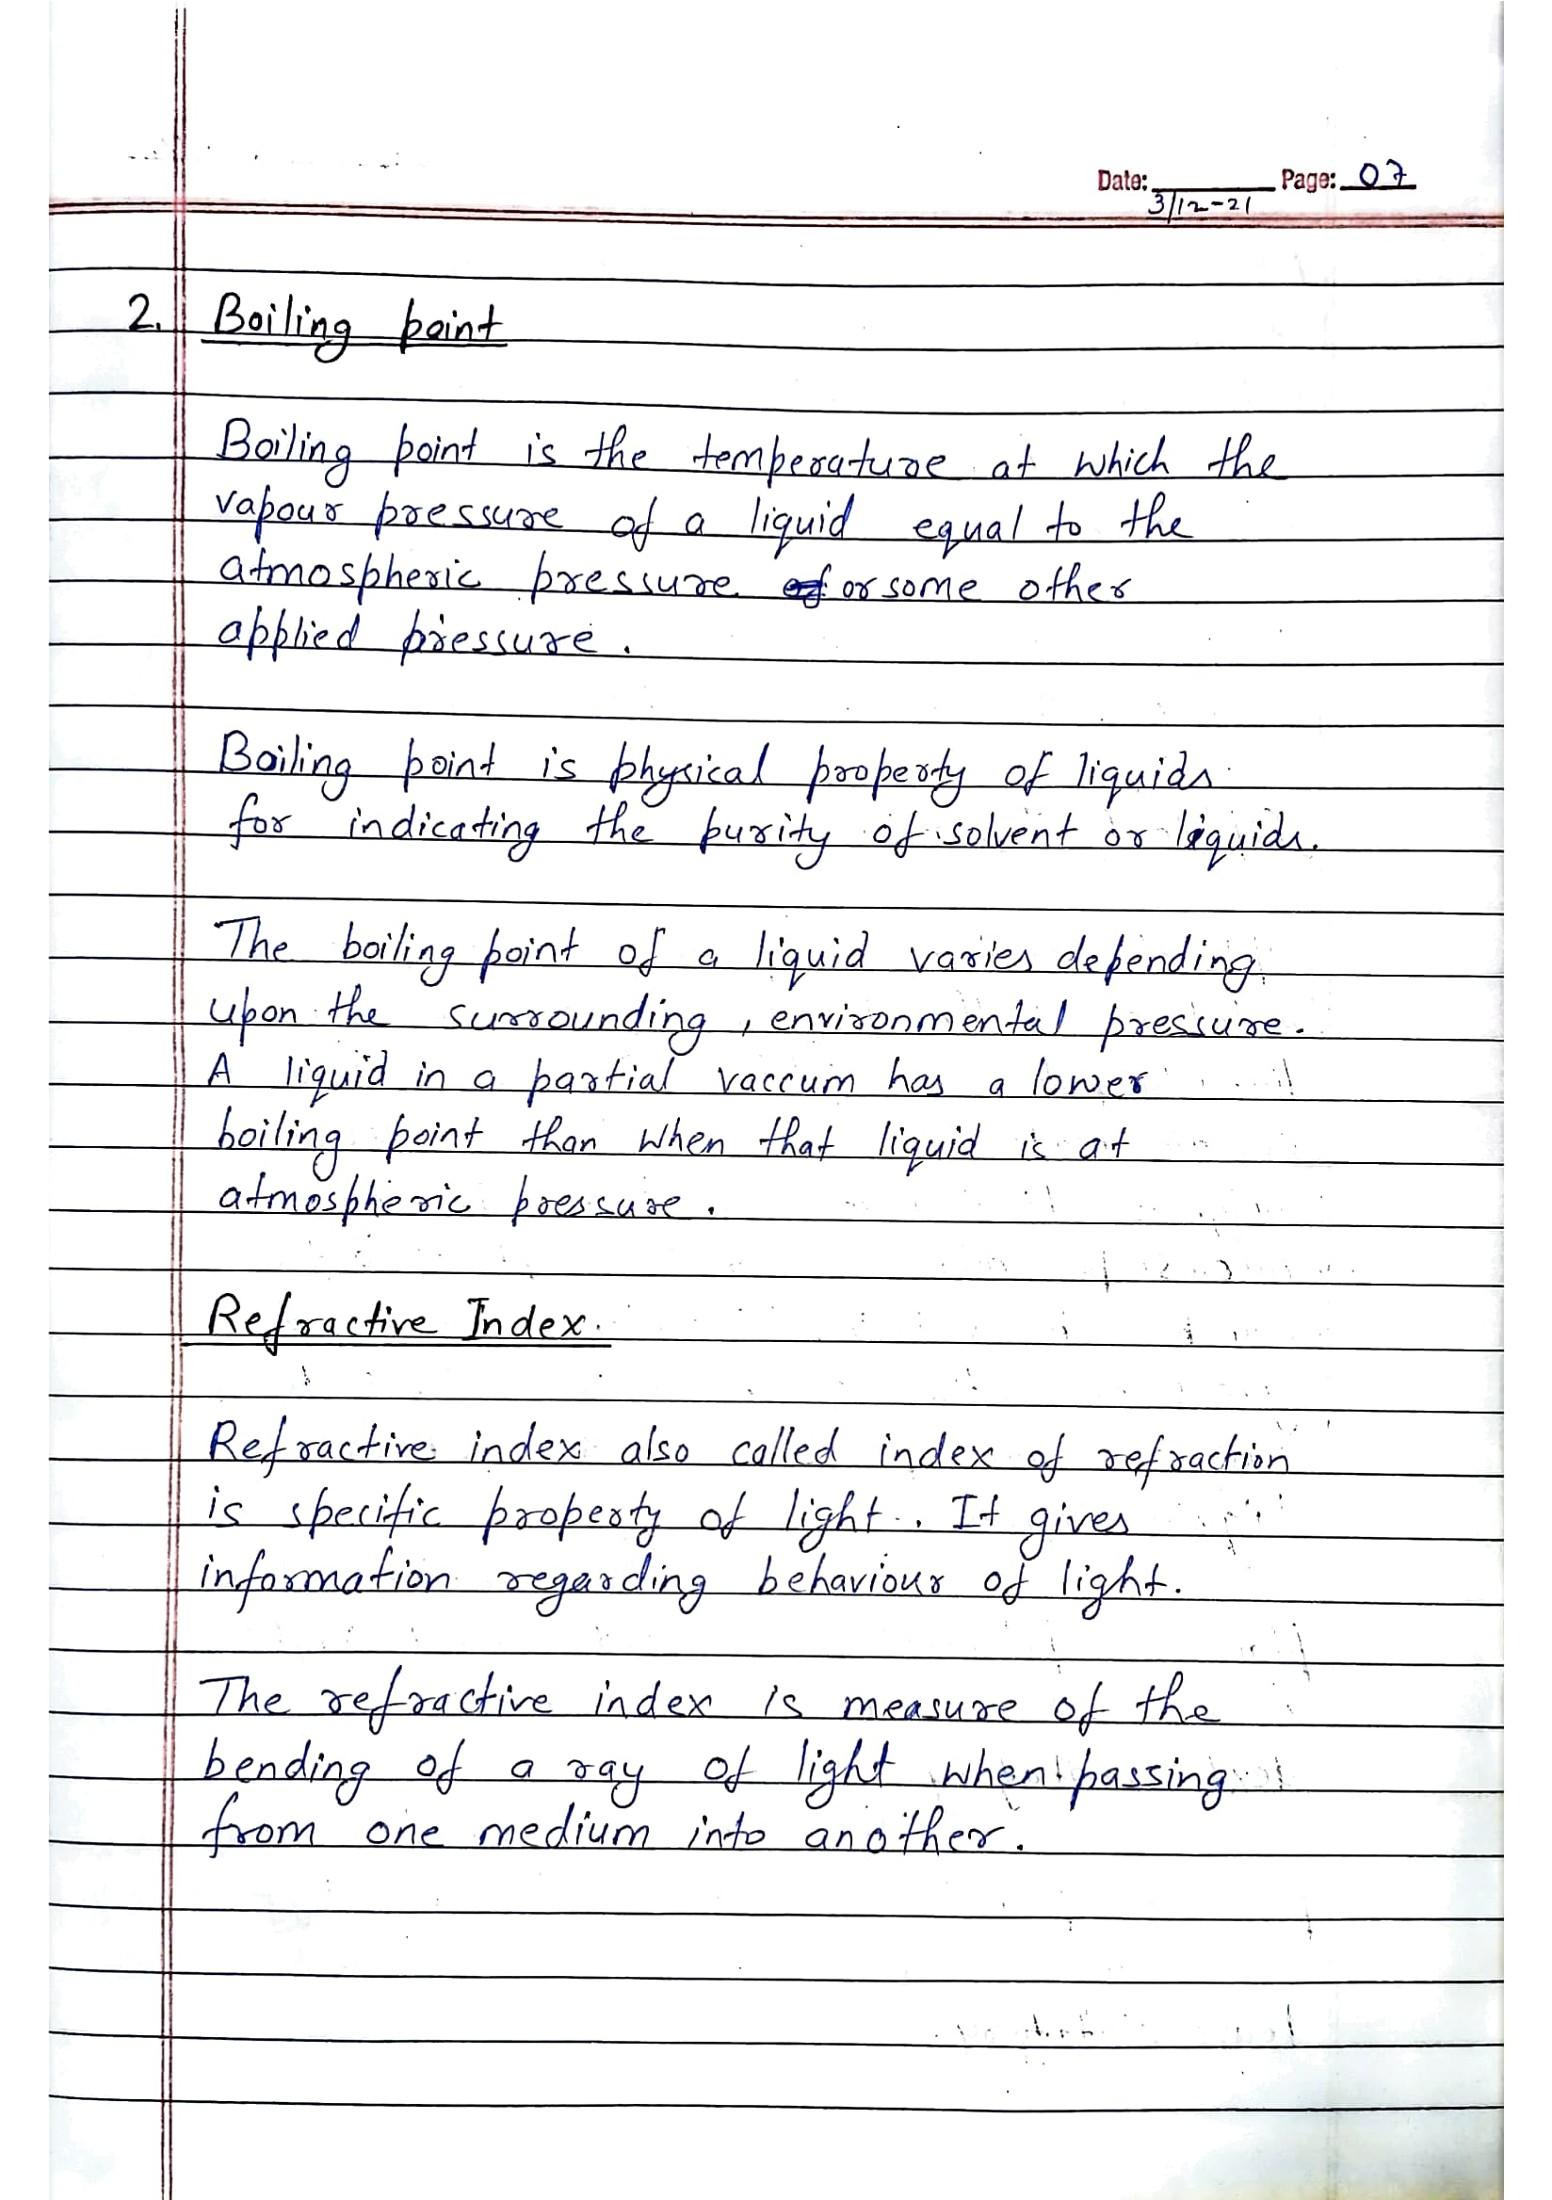 Date: 3/12-21 Page: 07
2. Boiling point
Boiling point is the temperature at which the
vapour pressure of a liquid equal to the
atmospheric pressure or some other
applied pressure.
Boiling point is physical property of liquids
for indicating the purity of solvent or liquids.
The boiling point of a liquid varies depending
upon the surrounding, environmental pressure.
A liquid in a partial vaccum has a lower
boiling point than when that liquid is at
atmospheric pressure.
Refractive Index.
Refractive index also called index of refraction
is specific property of light. It gives
information regarding behaviour of light.
The refractive index is measure of the
bending of a ray of light when passing
from one medium into another.